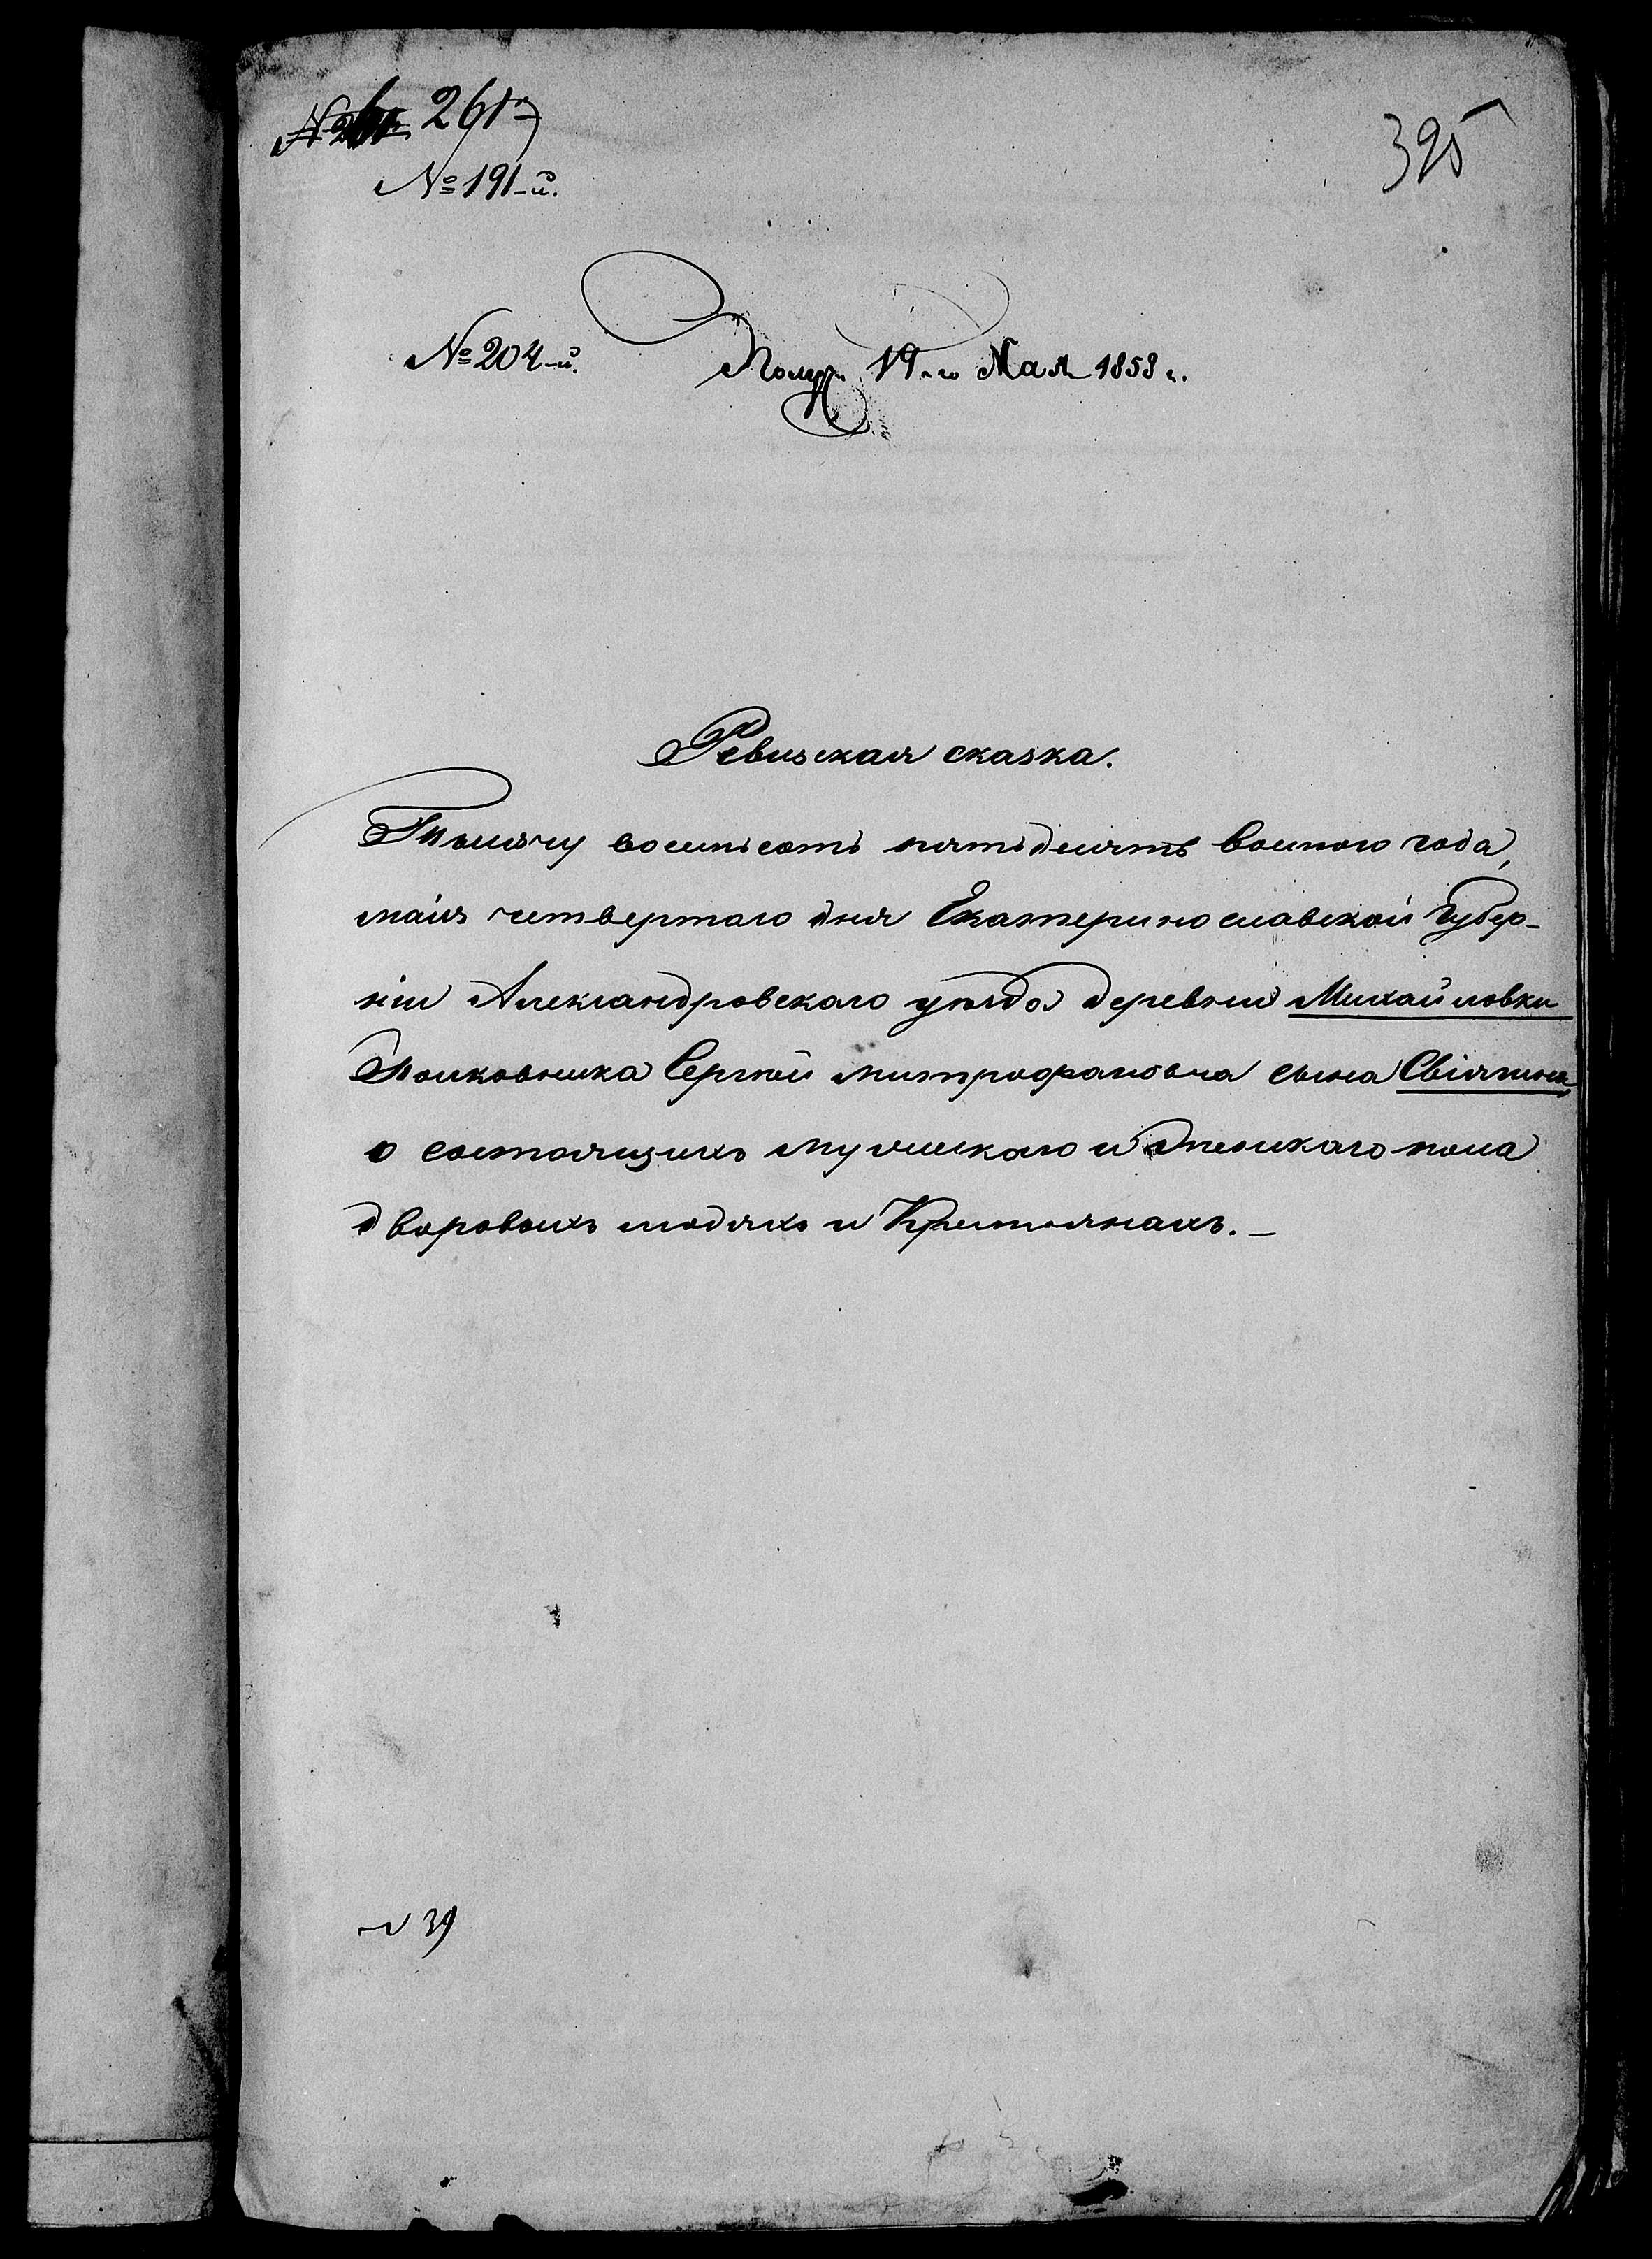 261
№ 191-й.
395
№ 204-й.
Получ. 19-го Мая 1858 г.
Ревизская сказка.
Тысячу восемьсотъ пятьдесятъ восмого года,
маія четвертаго дня Екатеринославской Губер-
ніи Александровскаго уѣзда деревни Михайловки
Полковника Сергѣй Митрофановча сына
о состоящихъ мужескаго и женскаго пола
дворовыхъ людяхъ и Крестьянахъ. –
№ 39